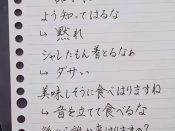 よう知ってはるな
↳ 黙れ
シャレたもん着とるなぁ
↳ ダサい
美味しそうに食べはりますね
↳ 音を立てて食べるな